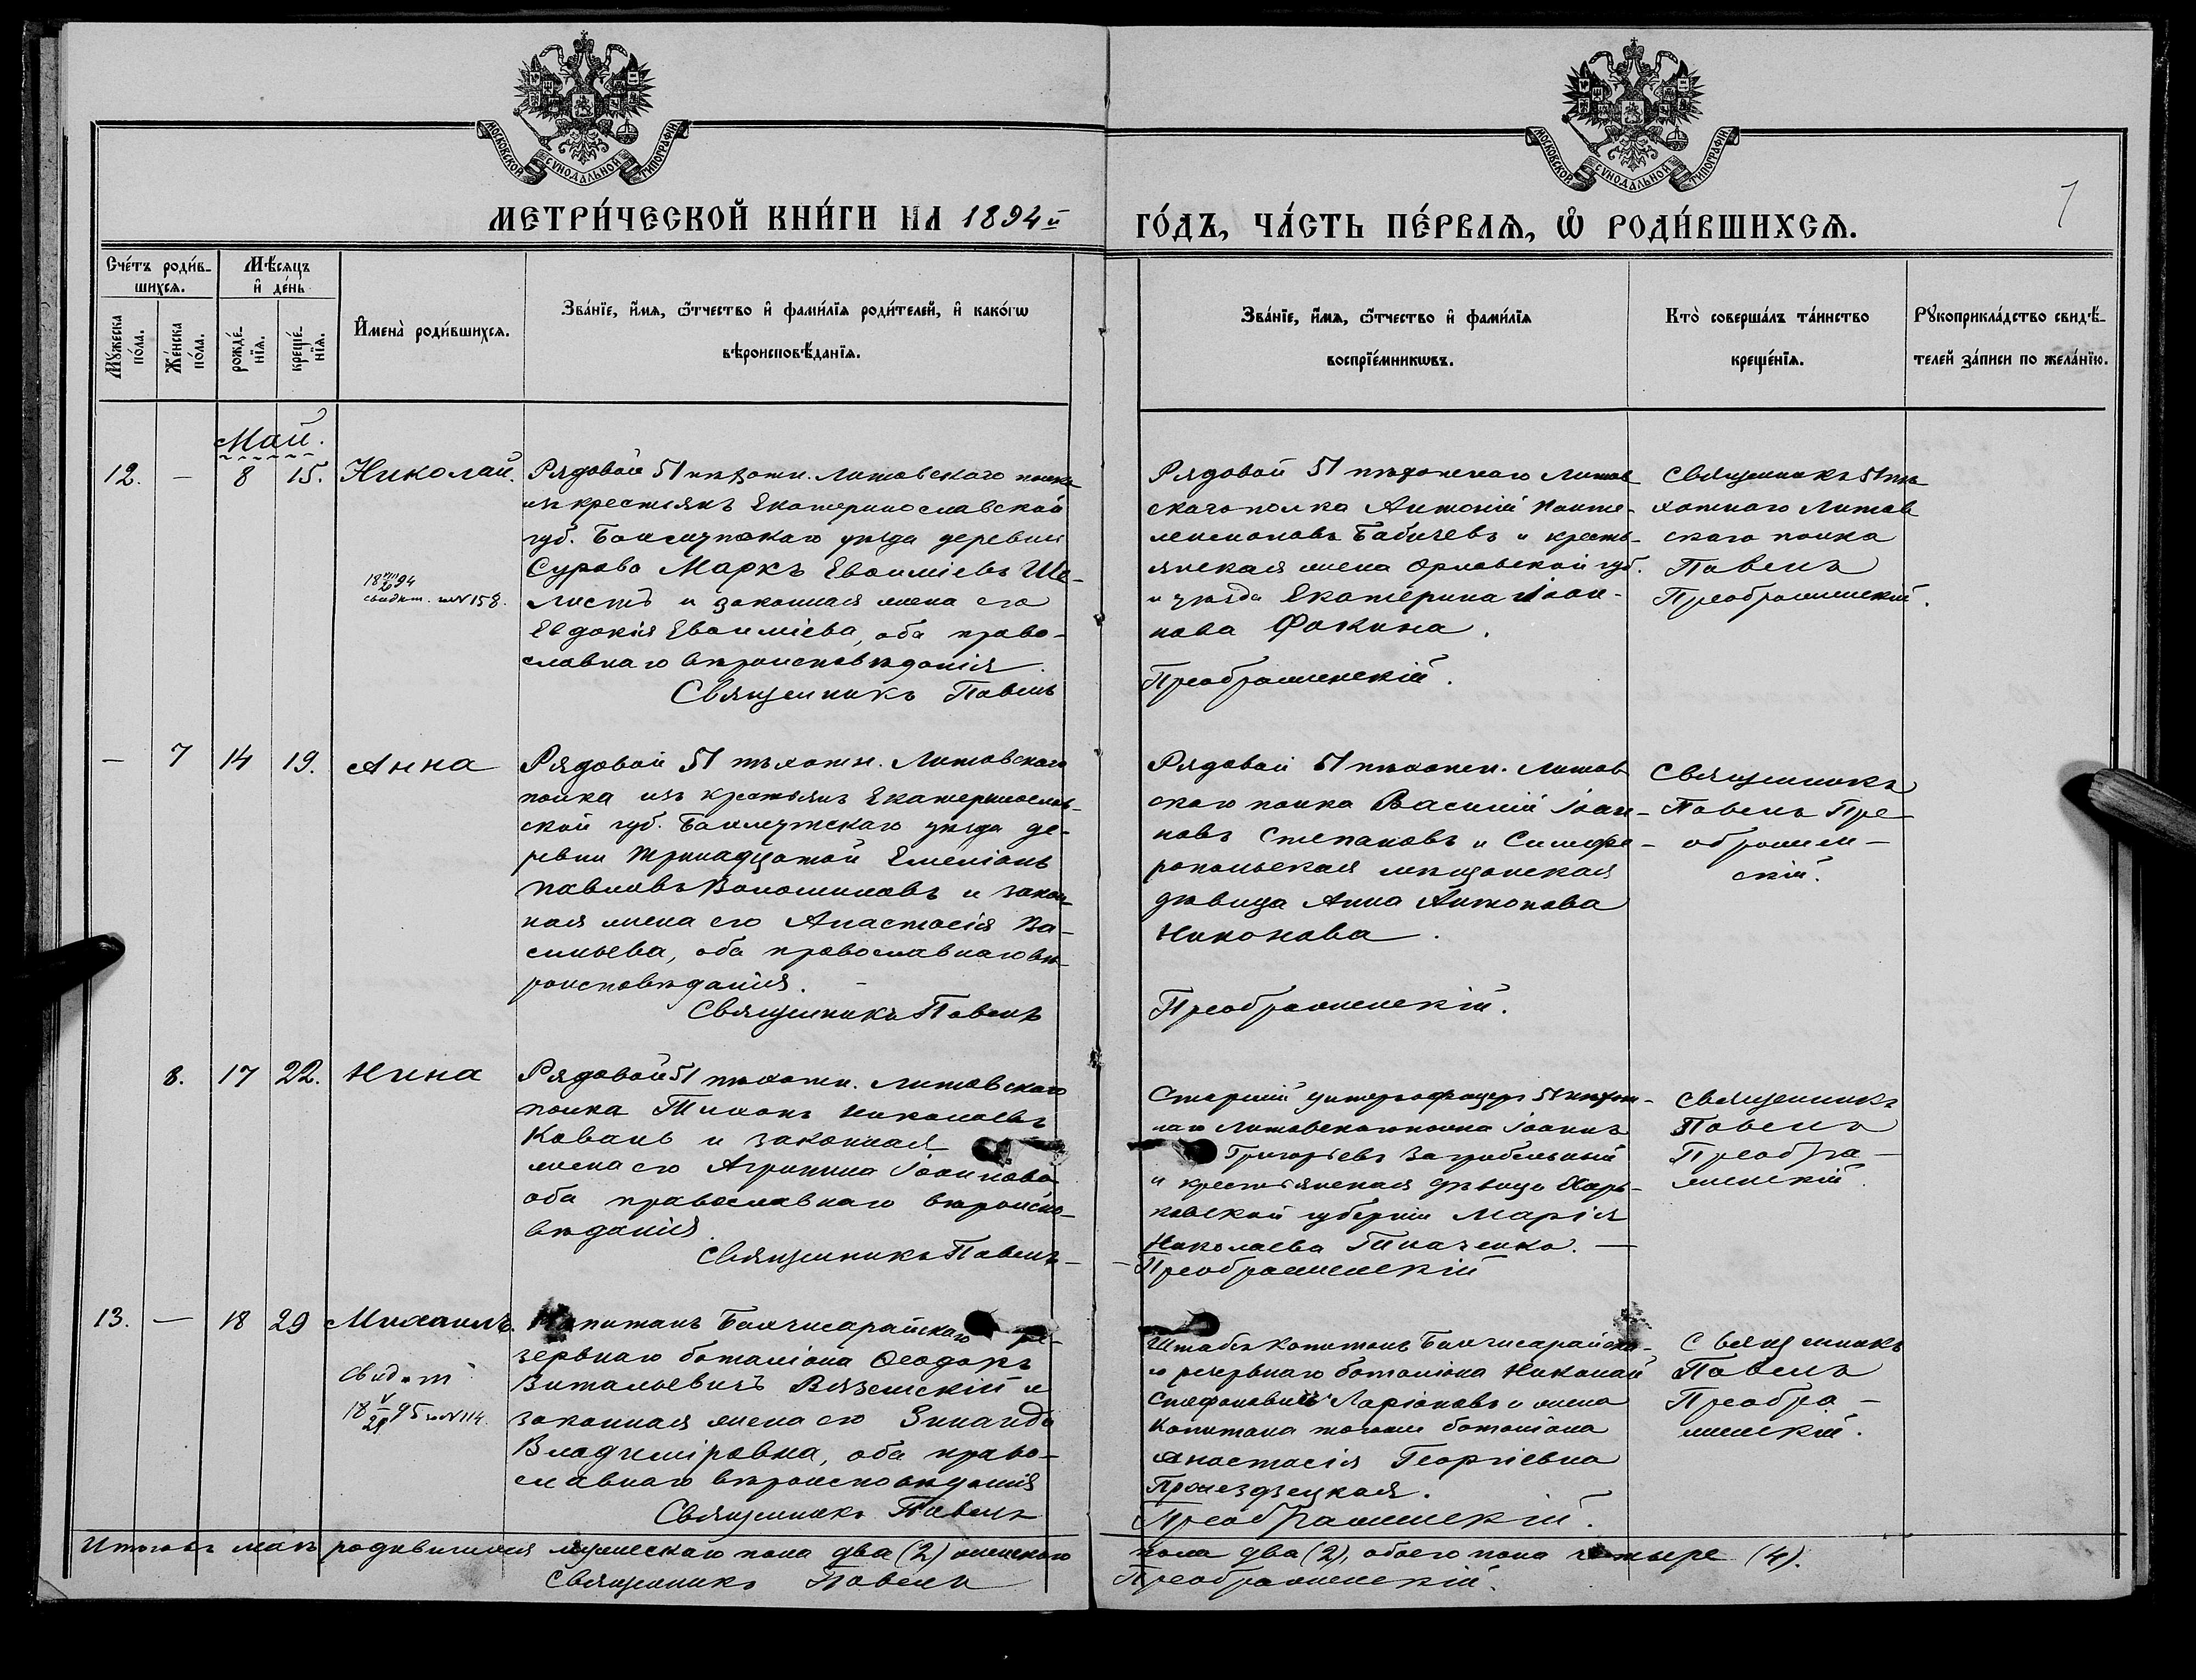 МОСКОВСКОЙ СѴНОДАЛЬНОЙ ТИПОГРАФІИ
МОСКОВСКОЙ СѴНОДАЛЬНОЙ ТИПОГРАФІИ
7
МЕТРИ́ЧЕСКОЙ КНИ́ГИ НА 1894й
ГО́ДЪ, ЧА́СТЬ ПЕ́РВАЯ, Ѽ РОДИ́ВШИХСЯ.
Сче́тъ роди́в-
шихся.
Мѣ́сяцъ
и҆ де́нь
Мꙋ́жеска
по́ла.
Же́нска
по́ла.
рожде́-
нїѧ.
креще́-
нїѧ.
И҆мена̀ роди́вшихсѧ.
Зва́нїе, и҆́мѧ, ѻ҆́тчество и҆ фами́лїѧ роди́телей, и҆ како́гѡ
вѣроисповѣ́данїѧ.
Зва́нїе, и҆́мѧ, ѻ҆́тчество и҆ фами́лїѧ
воспрїе́мникѡвъ.
Кто̀ соверша́лъ та́инство
креще́нїѧ.
Рꙋкоприкла́дство свидѣ́-
телей за́писи по жела́нїю.
Май.
12. — 8 15. Николай.
18 VIII/20 94
свидѣт. за N 158.
Рядовой 51 пѣхотн. Литовскаго полка
изъ крестьянъ Екатеринославской
губ. Бахмутскаго уѣзда деревни
Сурова Маркъ Евѳиміевъ Ше-
листъ и законная жена его
Евдокія Евѳиміева, оба право-
славнаго вѣроисповѣданія.
Священникъ Павелъ
Рядовой 51 пѣхотнаго Литов
скаго полка Антоній Панте-
леимоновъ Бабичевъ и кресть-
янская жена Орловской губ.
и уѣзда Екатерина Іоан-
нова Фокина.
Преображенскій.
Священникъ 51 пѣ
хотнаго Литов
скаго полка
Павелъ
Преображенскій.
— 7 14 19. Анна
Рядовой 51 пѣхотн. Литовскаго
полка изъ крестьянъ Екатеринослав-
ской губ. Бахмутскаго уѣзда де-
ревни Тринадцатой Емеліанъ
Павловъ Волошиновъ и закон-
ная жена его Анастасія Ва-
сильева, оба православнаго вѣ-
роисповѣданія. —
Священникъ Павелъ
Рядовой 51 пѣхотн. Литов
скаго полка Василій Іоан-
новъ Степановъ и Симфе-
ропольская мѣщанская
дѣвица Анна Антонова
Никонова.
Преображенскій.
Священникъ
Павелъ Пре-
ображен-
скій.
8. 17 22. Нина
Рядовой 51 пѣхотн. Литовскаго
полка Тихонъ Николаевъ
Коваль и законная
жена его Агрипина Іоаннова
оба православнаго вѣроиспо-
вѣданія.
Священникъ Павелъ —
Старшій унтеръ-офицеръ 51 пѣхот-
наго Литовскаго полка Іоаннъ
Григорьевъ Загребельный
и крестьянская дѣвица Харь-
ковской губерніи Марія
Николаева Ткаченко. —
— Преображенскій
Священникъ
Павелъ
Преобра-
женскій.
13. — 18 29 Михаилъ.
Свидѣт
18 V/29 95 за N 114.
Капитанъ Бахчисарайскаго ре-
зервнаго баталіона Ѳеодоръ
Витальевичъ Вяземскій и
законная жена его Зинаида
Владиміровна, оба право-
славнаго вѣроисповѣданія
Священникъ Павелъ
Штабсъ Капитанъ Бахчисарайска-
го резервнаго баталіона Николай
Стефановичъ Ларіоновъ и жена
Капитана того же баталіона
Анастасія Георгіевна
Преображенскій.
Священникъ
Павелъ
Преобра-
женскій.
Итого въ маѣ родившихся мужескаго пола два (2) женскаго
пола два (2), обоего пола четыре (4).
Священникъ Павелъ
Преображенскій.